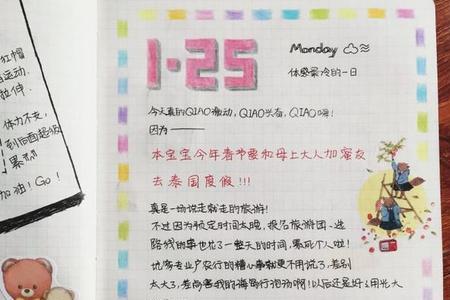 红帽
运动.
拉伸.
体力不支,
到后面超级
累!!!
加油! Go!
1·25
Monday
体感最冷的一日
今天真的QIAO激动, QIAO兴奋, QIAO嗨!
因为——
本宝宝今年春节要和母上大人加蜜友
去泰国度假!!!
真是一场说走就走的旅游!
不过因为决定时间太晚, 报名旅游团、选
路线的事也花了一整天的时间, 累死个人啦!
也许专业户农行的糟心事就更不用说了, 差别
太大了, 差点害我的海岛行泡汤了啊!以后还是好好用光大